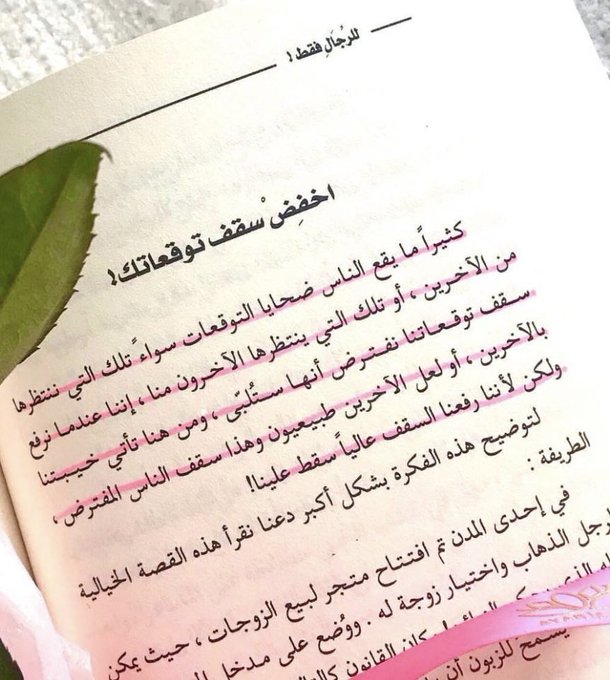 للرُجالِ فقط !
اخفِضْ سقف توقعاتك!
كثيراً ما يقع الناس ضحايا التوقعات سواءً تلك التي ننتظرها
من الآخرين ، أو تلك التي ينتظرها الآخرون منا ، إننا عندما نرفع
سقف توقعاتنا نفترض أنها ستُلبّى ، ومن هنا تأتي خيبتنا
بالآخرين ، أو لعل الآخرين طبيعيون وهذا سقف الناس المفترض ،
ولكن لأننا رفعنا السقف عالياً سقط علينا!
لتوضيح هذه الفكرة بشكل أكبر دعنا نقرأ هذه القصة الخيالية
الطريفة :
في إحدى المدن تم افتتاح متجر لبيع الزوجات ، حيث يمكن
رجل الذهاب واختيار زوجة له . ووُضع على مدخل
الذي كان القانون
يسمح للزبون أن